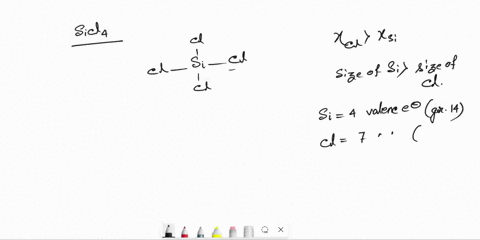 SiCl4
Cl
Cl — Si — Cl
Cl
χCl > χSi
Size of Si > size of
Cl.
Si = 4 valence e⊖ (gr. 14)
Cl = 7 " (